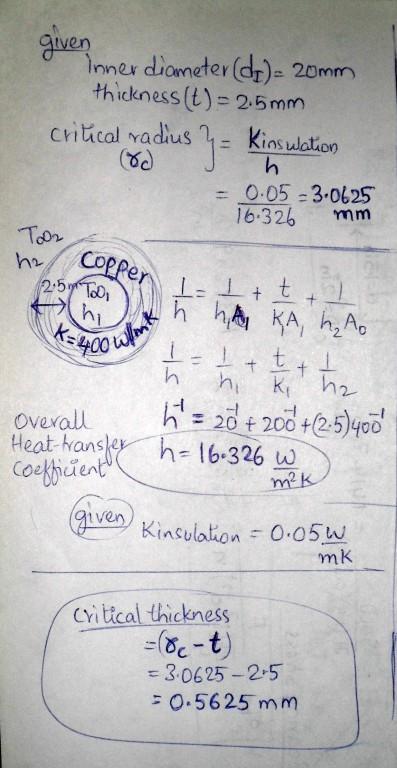 given
Inner diameter (dI) = 20mm
thickness (t) = 2.5mm
Critical radius } = Kinsulation / h
(rc)
= 0.05 / 16.326 = 3.0625 mm
T∞2
h2
Copper
2.5m
T∞1
h1
K=400 W/mK
1/h = 1/h1A1 + t/K1A1 + 1/h2A0
1/h = 1/h1 + t/K1 + 1/h2
Overall
Heat-transfer
Coefficient
h^-1 = 20^-1 + 200^-1 + (2.5)400^-1
h = 16.326 W/m²K
given
Kinsulation = 0.05 W/mK
Critical thickness
=(rc - t)
= 3.0625 - 2.5
= 0.5625 mm